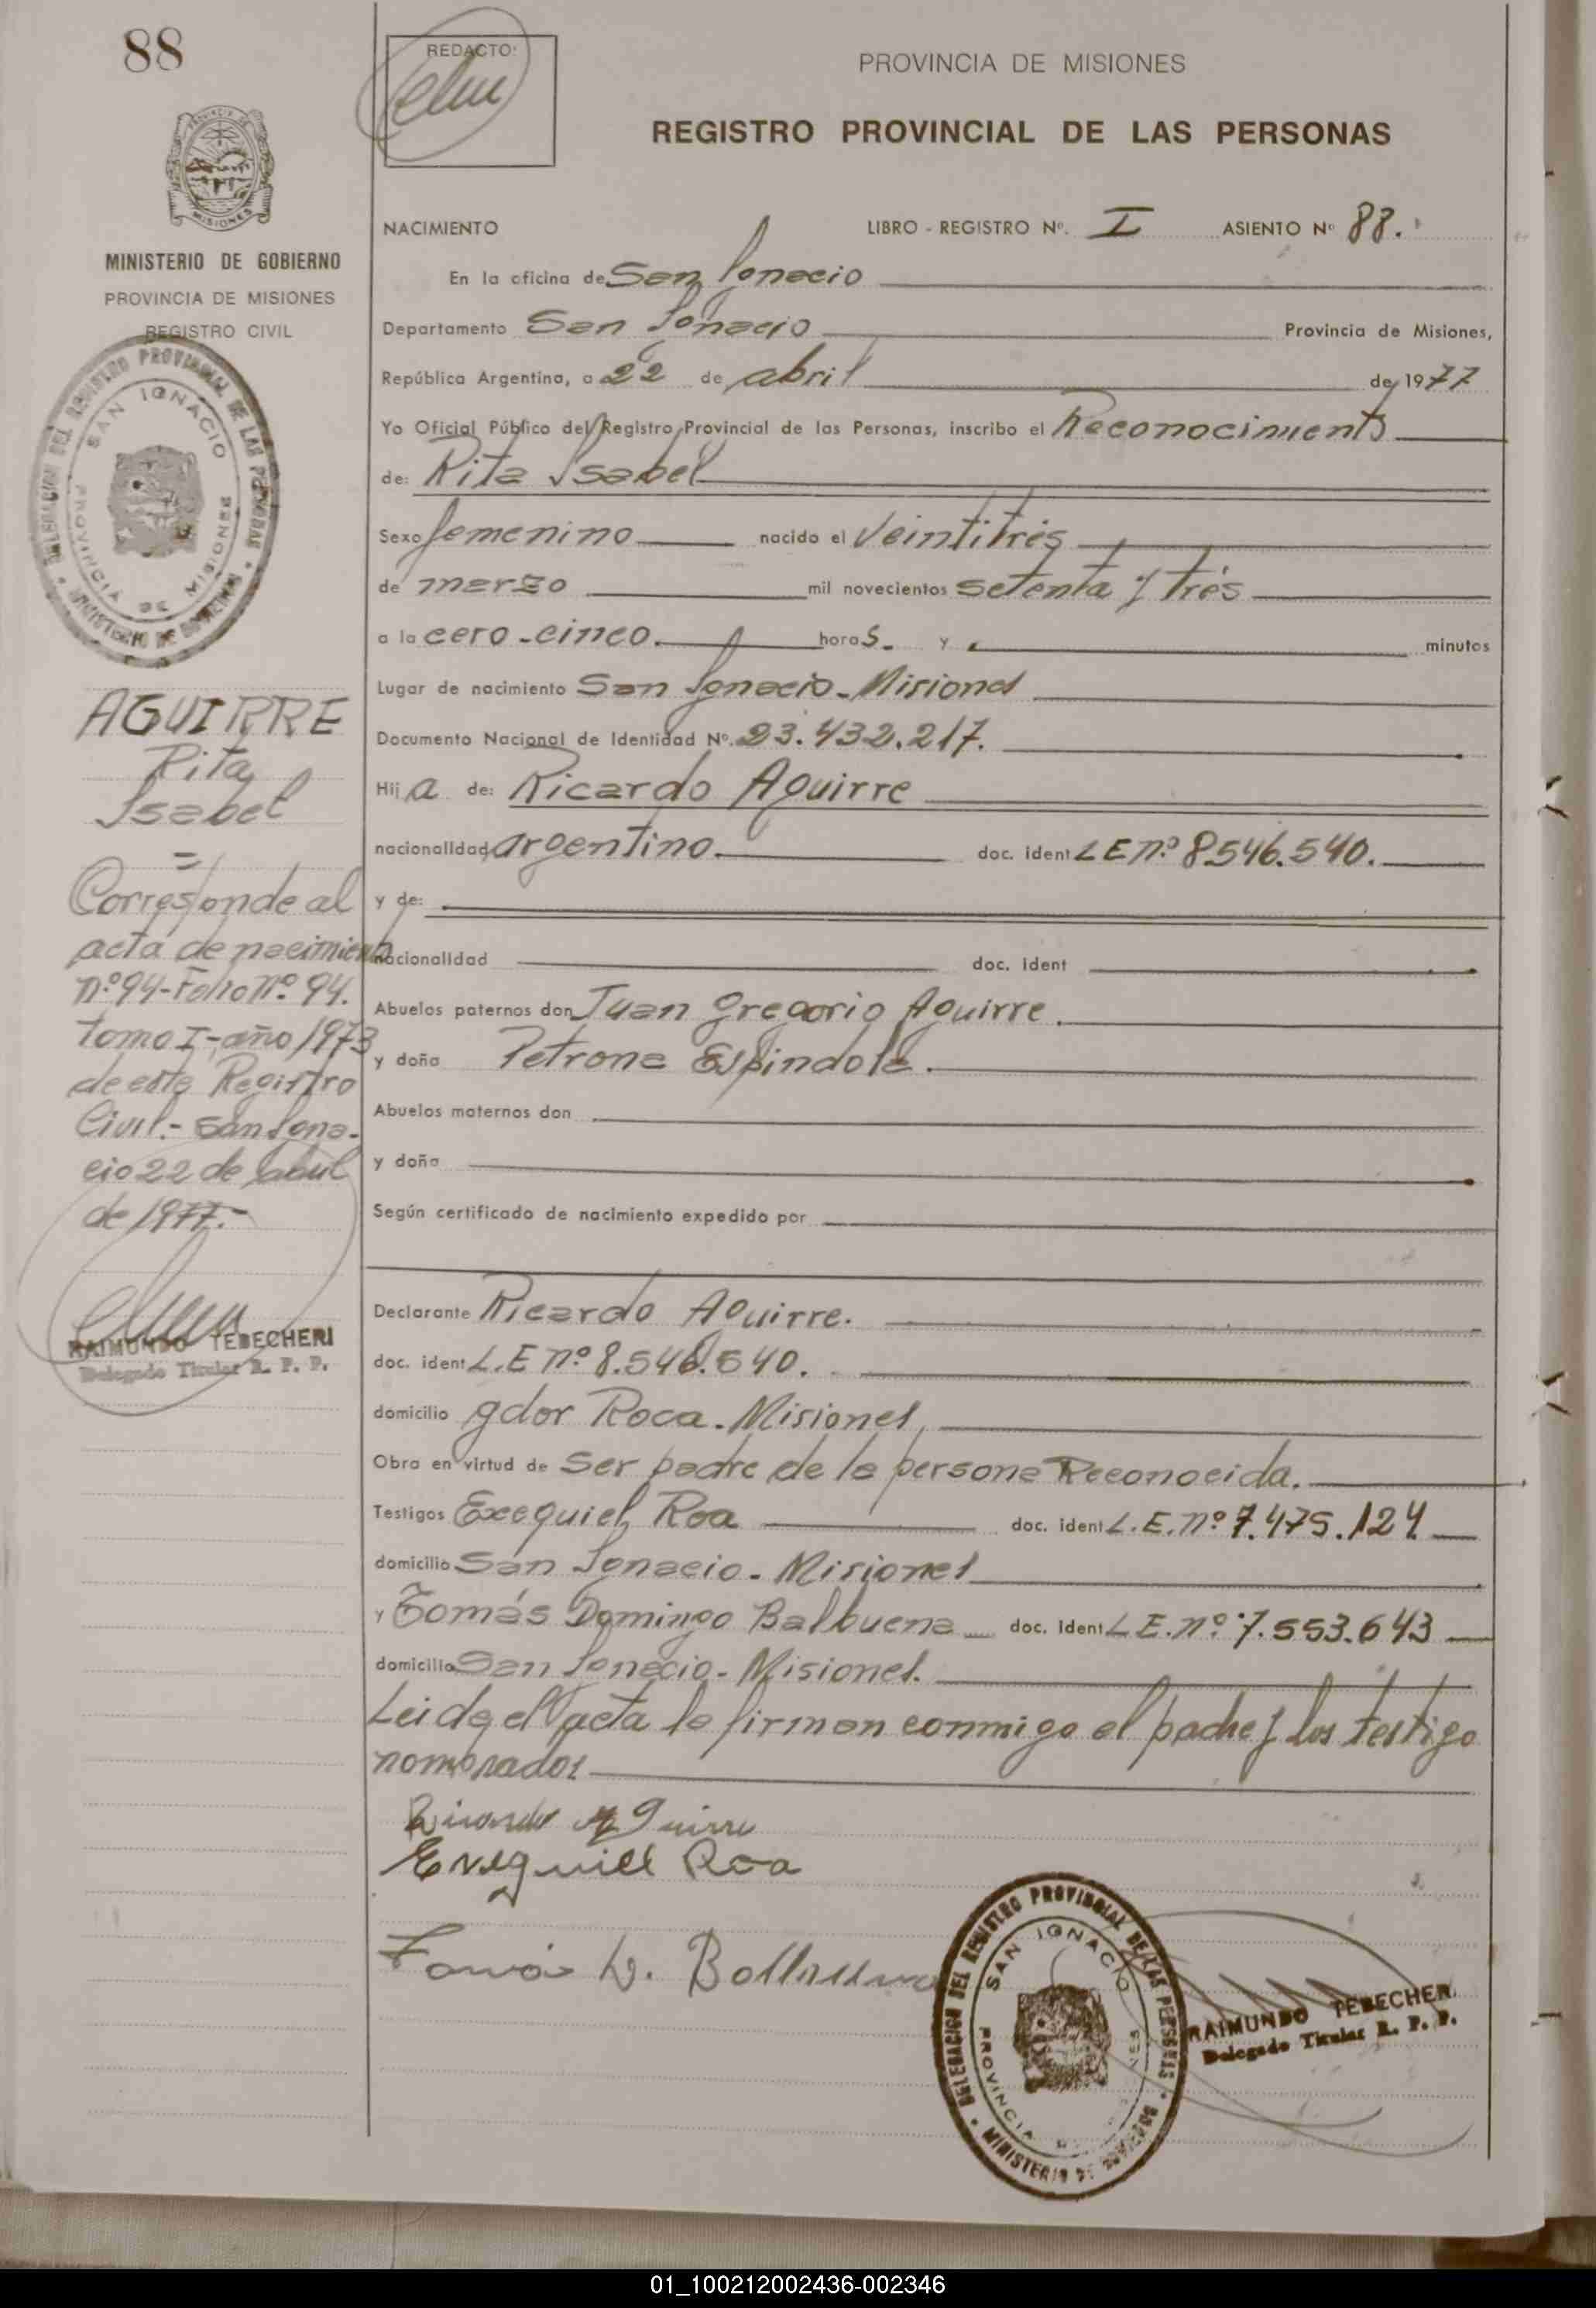 88
REDACTO:
PROVINCIA DE MISIONES
REGISTRO PROVINCIAL DE LAS PERSONAS
MINISTERIO DE GOBIERNO
PROVINCIA DE MISIONES
REGISTRO CIVIL
DELEGACION DEL REGISTRO PROVINCIAL DE LAS PERSONAS
SAN IGNACIO
PROVINCIA DE MISIONES
MINISTERIO DE GOBIERNO
AGUIRRE
Rita
Isabel
=
Corresponde al
acta de nacimiento
nº 94-Folio Nº 94.
tomo I-año 1973
de este Registro
Civil.- San Igna-
cio 22 de abril
de 1977.-
RAIMUNDO TEBECHERI
Delegado Titular R. P. P.
NACIMIENTO LIBRO - REGISTRO Nº. I ASIENTO Nº 88.
En la oficina de San Ignacio
Departamento San Ignacio Provincia de Misiones,
República Argentina, a 22 de abril de 1977
Yo Oficial Público del Registro Provincial de las Personas, inscribo el Reconocimiento
de: Rita Isabel
Sexo femenino nacido el Veintitrés
de marzo mil novecientos setenta y trés
a la cero-cinco. horas. y minutos
Lugar de nacimiento San Ignacio-Misiones
Documento Nacional de Identidad Nº. 23.432.217.
Hija de: Ricardo Aguirre
nacionalidad argentino. doc. ident LE nº 8.546.540.
y de:
nacionalidad doc. ident
Abuelos paternos don Juan Gregorio Aguirre.
y doña Petrona Espindola.
Abuelos maternos don
y doña
Según certificado de nacimiento expedido por
Declarante Ricardo Aguirre.
doc. ident L.E nº 8.546.540.
domicilio gdor Roca. Misiones,
Obra en virtud de ser padre de la persona Reconocida.
Testigos Exequiel Roa doc. ident L.E. nº 7.475.124
domicilio San Ignacio. Misiones
y Tomás Domingo Balbuena doc. ident L E. nº 7.553.643
domicilio San Ignacio- Misiones.
Leida el acta la firman conmigo el padre y los testigo
nombrados
Ricardo Aguirre
Exequiel Roa
DELEGACION DEL REGISTRO PROVINCIAL DE LAS PERSONAS
SAN IGNACIO
PROVINCIA
MINISTERIO DE GOBIERNO
RAIMUNDO TEBECHERI
Delegado Titular R. P. P.
01_100212002436-002346